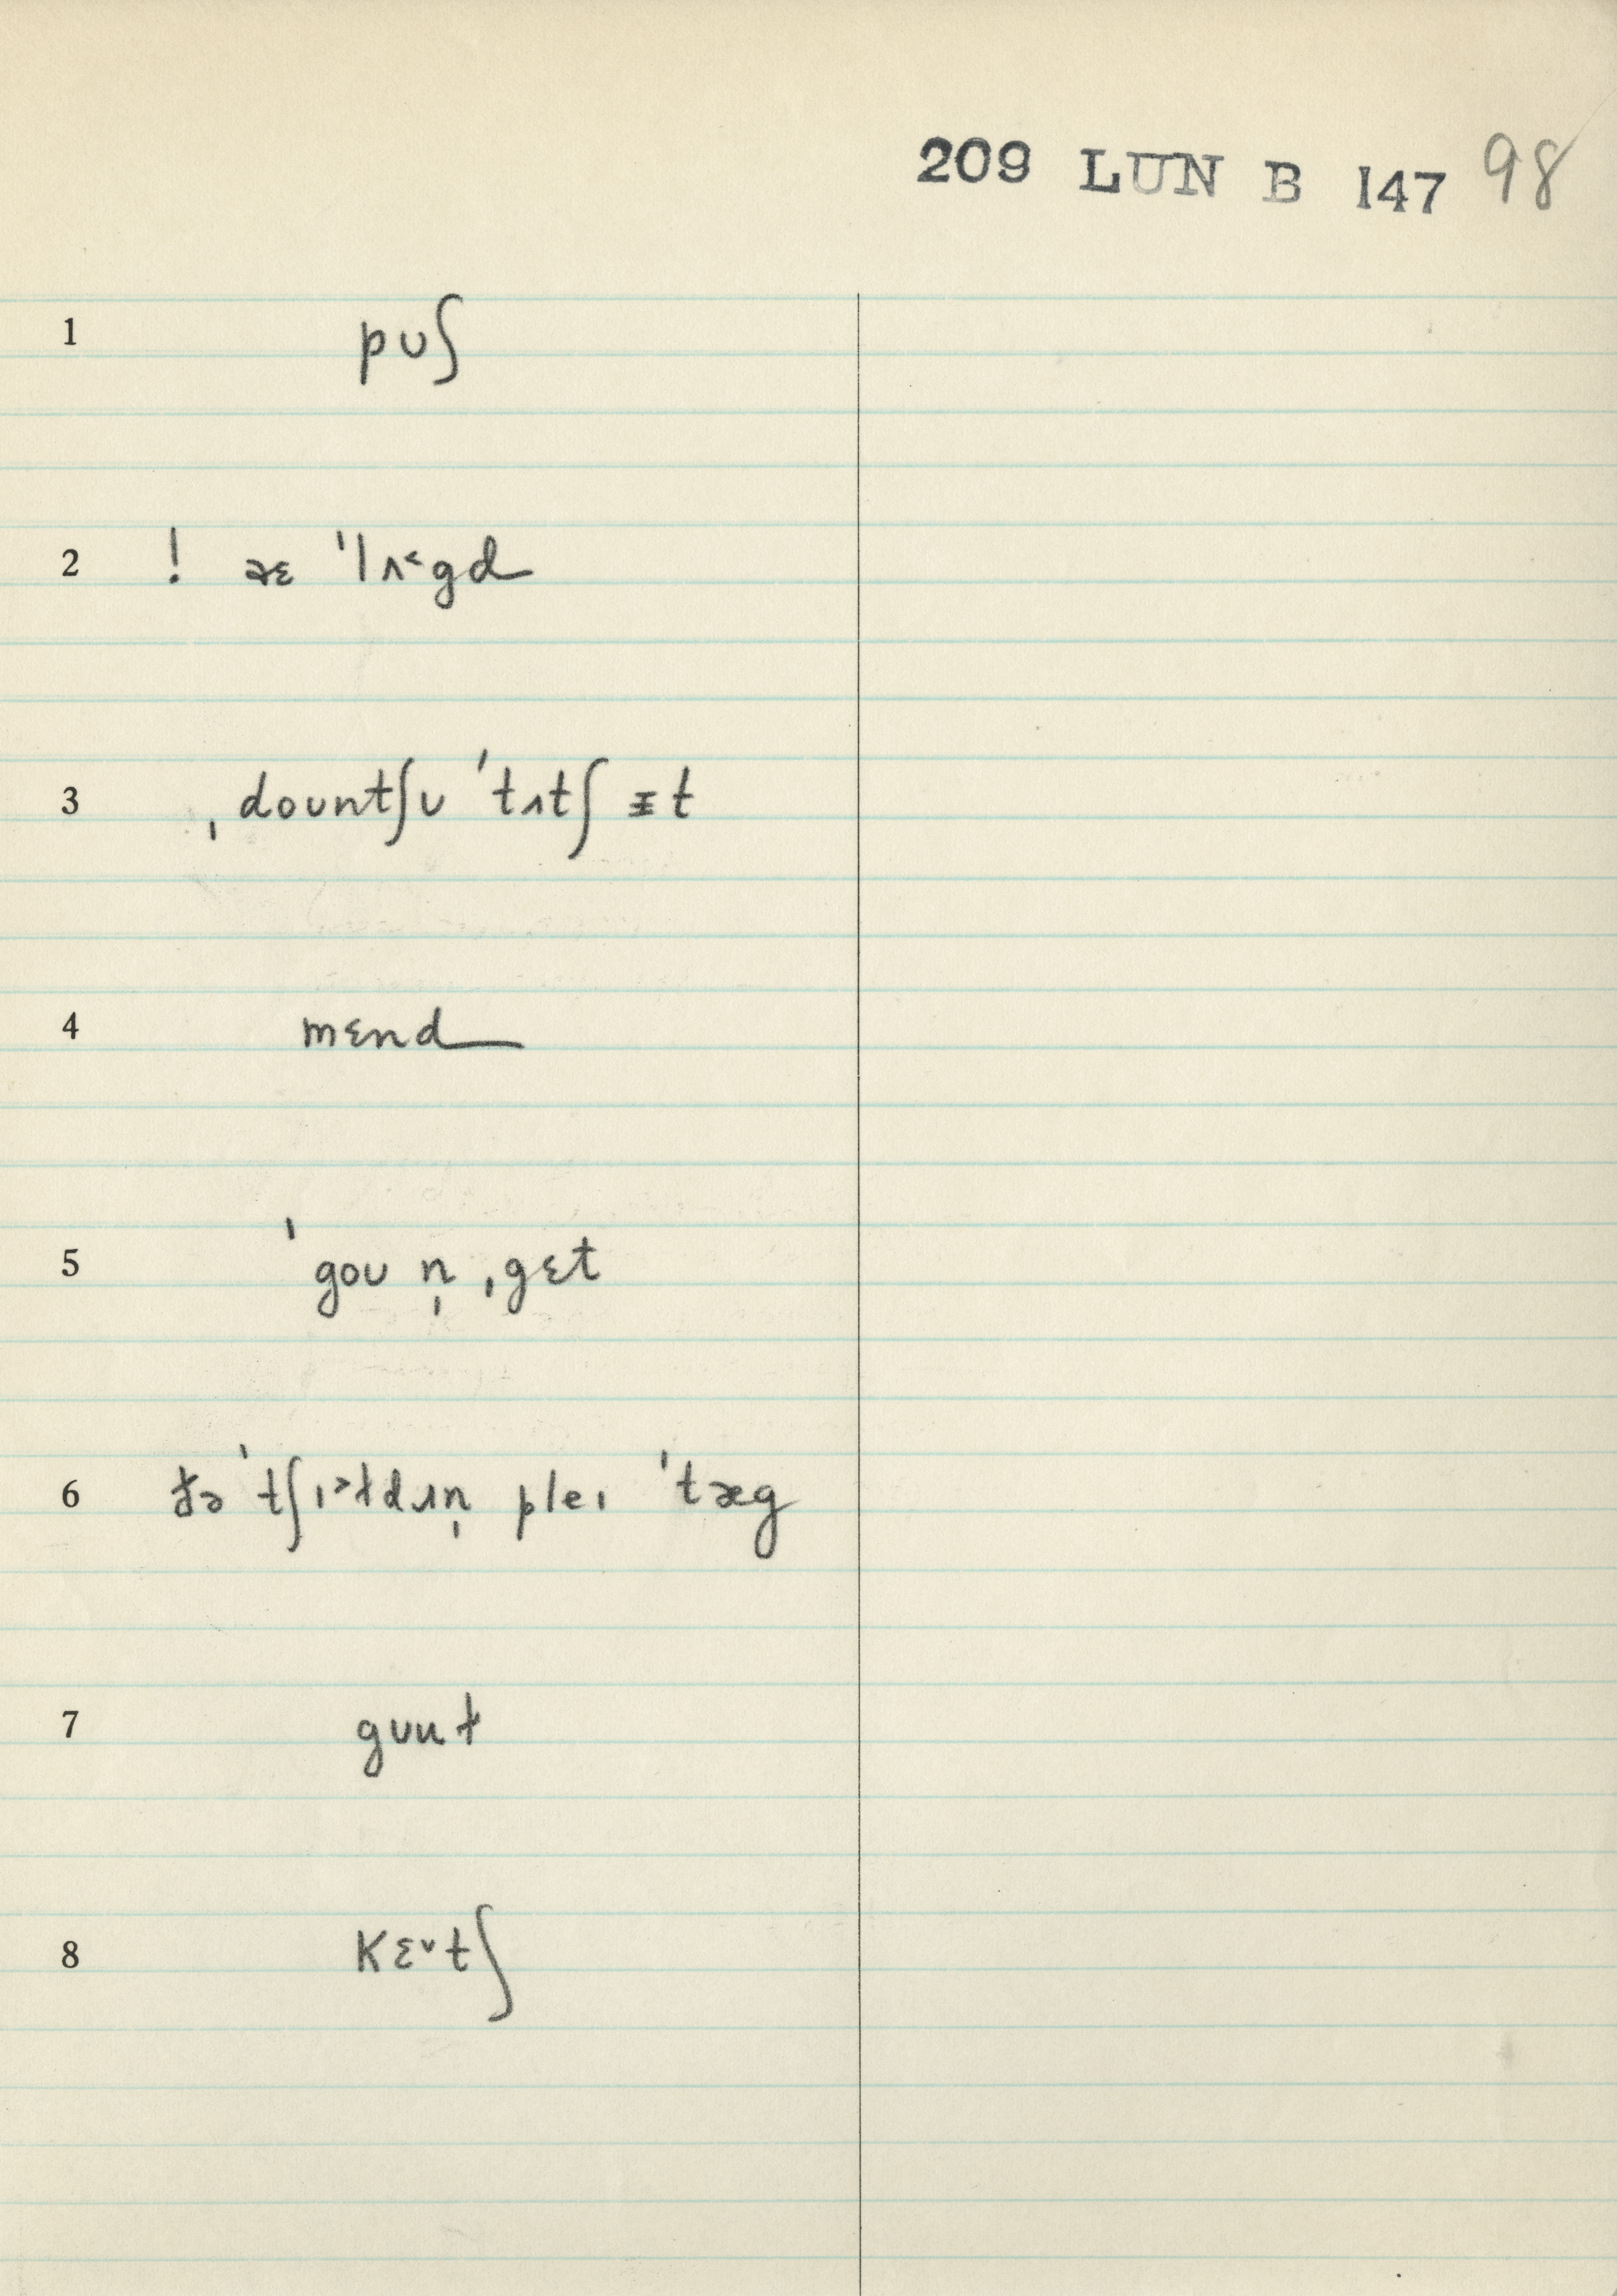 209 LUN B 147 98
1 pʊʃ
2 ! æɛ ˈlʌ˂gd
3 ˌdoʊntʃʊ ˈtʌtʃ ᵻt
4 mɛnd
5 ˈgoʊ n̩ ˌgɛt
6 ðə ˈtʃɪ˃ɫdɹn̩ pleɪ ˈtæg
7 gʊuɫ
8 kɛ˅tʃ